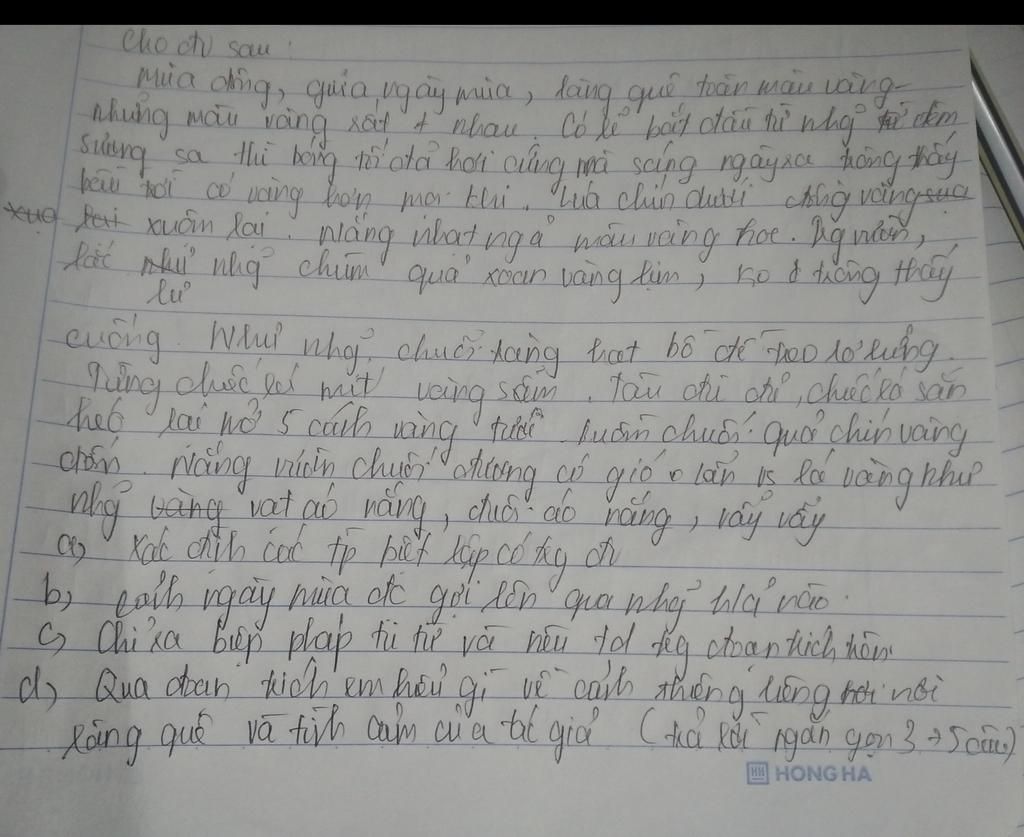 Cho đv sau:
Mùa đông, giữa ngày mùa, làng quê toàn màu vàng-
những màu vàng rất ≠ nhau. Có lẽ bắt đầu từ nhg̉ đêm
sương sa thì bóng tối đã hơi cứng mà sáng ngày ra trông thấy
bầu trời có vàng hơn mọi khi. Lúa chín dưới đồng vàng
xuôm lại. Nắng nhạt ngả màu vàng hoe. Tg vườn,
lắc nhg̉ chùm quả xoan vàng lịm, ko trông thấy
lư
cuống. Như nhg̉ chuỗi tràng hạt bồ đề treo lơ lửng.
Từng chiếc lá mít vàng sẫm. Tàu đu đủ, chiếc lá sắn
héo lại nở 5 cánh vàng tươi. Buồng chuối quả chín vàng
đốm. Nắng vườn chuối đương có gió lẫn vs lá vàng như
nhg̉ vạt áo nắng, đuôi áo nắng, vẫy vẫy
a, Xác định các tp biệt lập có tg đv
b, Cảnh ngày mùa đc gợi lên qua nhg̉ h/ả nào.
c, Chỉ ra biện pháp tu từ và nêu td tg đoạn trích trên.
d, Qua đoạn trích em hiểu gì về cảnh nơi
làng quê và tình cảm của tác giả (trả lời ngắn gọn 3 → 5 câu)
HONG HA